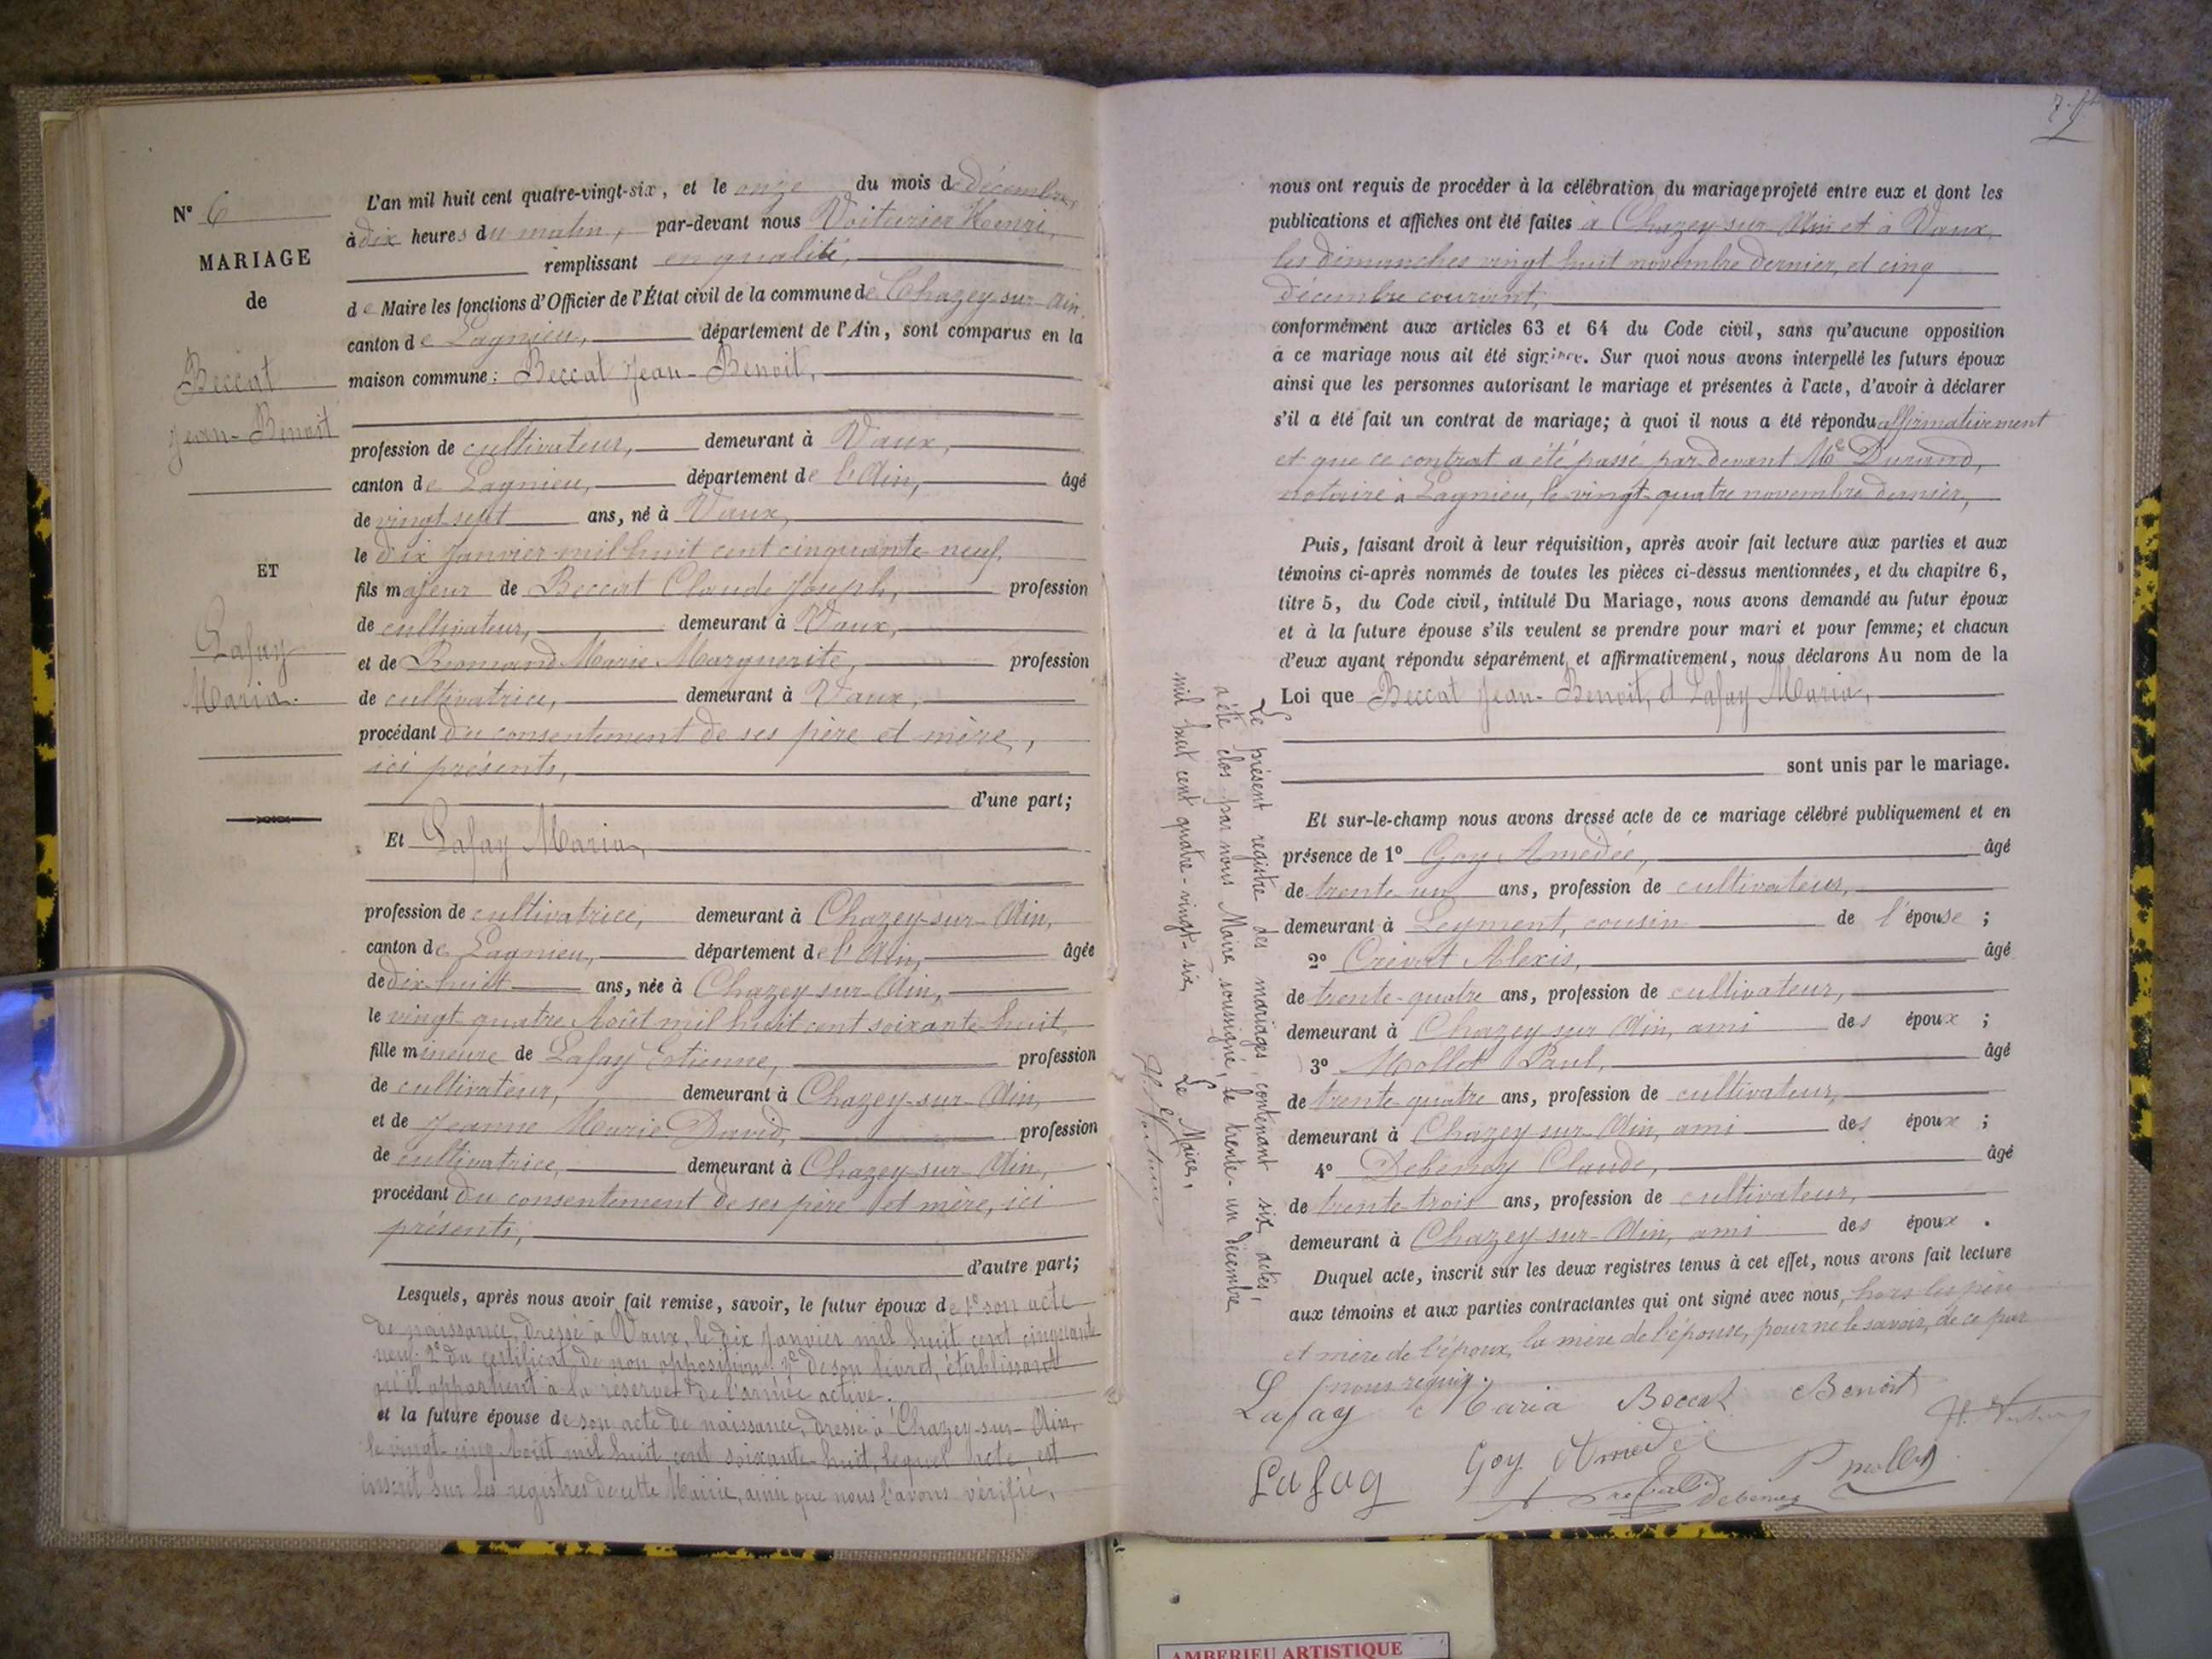 N° 6
MARIAGE
de
Beccat
Jean-Benoit
ET
Lafay
Maria.
L'an mil huit cent quatre-vingt-six, et le onze du mois de décembre,
à dix heures du matin, par-devant nous Voiturier Henri,
remplissant en qualité,
de Maire les fonctions d'Officier de l'État civil de la commune de Chazey-sur-Ain,
canton de Lagnieu, département de l'Ain, sont comparus en la
maison commune: Beccat Jean-Benoit,
profession de cultivateur, demeurant à Vaux,
canton de Lagnieu, département de l'Ain, âgé
de vingt-sept ans, né à Vaux,
le dix Janvier mil huit cent cinquante-neuf,
fils majeur de Beccat Claude Joseph, profession
de cultivateur, demeurant à Vaux,
et de Romand Marie Marguerite, profession
de cultivatrice, demeurant à Vaux,
procédant du consentement de ses père et mère,
ici présents,
d'une part;
Et Lafay Maria,
profession de cultivatrice, demeurant à Chazey-sur-Ain,
canton de Lagnieu, département de l'Ain, âgée
de dix-huit ans, née à Chazey-sur-Ain,
le vingt-quatre Août mil huit cent soixante-huit,
fille mineure de Lafay Etienne, profession
de cultivateur, demeurant à Chazey-sur-Ain,
et de Jeanne Marie David, profession
de cultivatrice, demeurant à Chazey-sur-Ain,
procédant du consentement de ses père et mère, ici
présents,
d'autre part;
Lesquels, après nous avoir fait remise, savoir, le futur époux de 1° son acte
de naissance, dressé à Vaux, le dix Janvier mil huit cent cinquante
neuf; 2° du certificat de non opposition; 3° de son livret, établissant
qu'il appartient à la réserve de l'armée active.
et la future épouse de son acte de naissance, dressé à Chazey-sur-Ain,
le vingt-cinq Août mil huit cent soixante-huit, lequel acte est
inscrit sur les registres de cette Mairie, ainsi que nous l'avons vérifié,
nous ont requis de procéder à la célébration du mariage projeté entre eux et dont les
publications et affiches ont été faites à Chazey-sur-Ain et à Vaux,
les dimanches vingt huit novembre dernier, et cinq
décembre courant,
conformément aux articles 63 et 64 du Code civil, sans qu'aucune opposition
à ce mariage nous ait été signifiée. Sur quoi nous avons interpellé les futurs époux
ainsi que les personnes autorisant le mariage et présentes à l'acte, d'avoir à déclarer
s'il a été fait un contrat de mariage; à quoi il nous a été répondu affirmativement
et que ce contrat a été passé par-devant Me Durand,
notaire à Lagnieu, le vingt-quatre novembre dernier,
Puis, faisant droit à leur réquisition, après avoir fait lecture aux parties et aux
témoins ci-après nommés de toutes les pièces ci-dessus mentionnées, et du chapitre 6,
titre 5, du Code civil, intitulé Du Mariage, nous avons demandé au futur époux
et à la future épouse s'ils veulent se prendre pour mari et pour femme; et chacun
d'eux ayant répondu séparément et affirmativement, nous déclarons Au nom de la
Loi que Beccat Jean-Benoit, et Lafay Maria,
sont unis par le mariage.
Et sur-le-champ nous avons dressé acte de ce mariage célébré publiquement et en
présence de 1° Goy Amédée, âgé
de trente-un ans, profession de cultivateur,
demeurant à Leyment, cousin de l'épouse ;
2° Crévat Alexis, âgé
de trente-quatre ans, profession de cultivateur,
demeurant à Chazey sur Ain, ami des époux ;
3° Mollet Paul, âgé
de trente-quatre ans, profession de cultivateur,
demeurant à Chazey-sur-Ain, ami des époux ;
4° Debeney Claude, âgé
de trente-trois ans, profession de cultivateur,
demeurant à Chazey-sur-Ain, ami des époux .
Duquel acte, inscrit sur les deux registres tenus à cet effet, nous avons fait lecture
aux témoins et aux parties contractantes qui ont signé avec nous, hors les père
et mère de l'époux, la mère de l'épouse, pour ne le savoir, de ce par
nous requis.
Lafay Maria Beccat Benoit
Lafay Goy Amédée P mollet
Debeney
Le présent registre des mariages, contenant six actes,
a été clos par nous Maire soussigné, le trente-un décembre
mil huit cent quatre-vingt-six
Le Maire,
AMBERIEU ARTISTIQUE